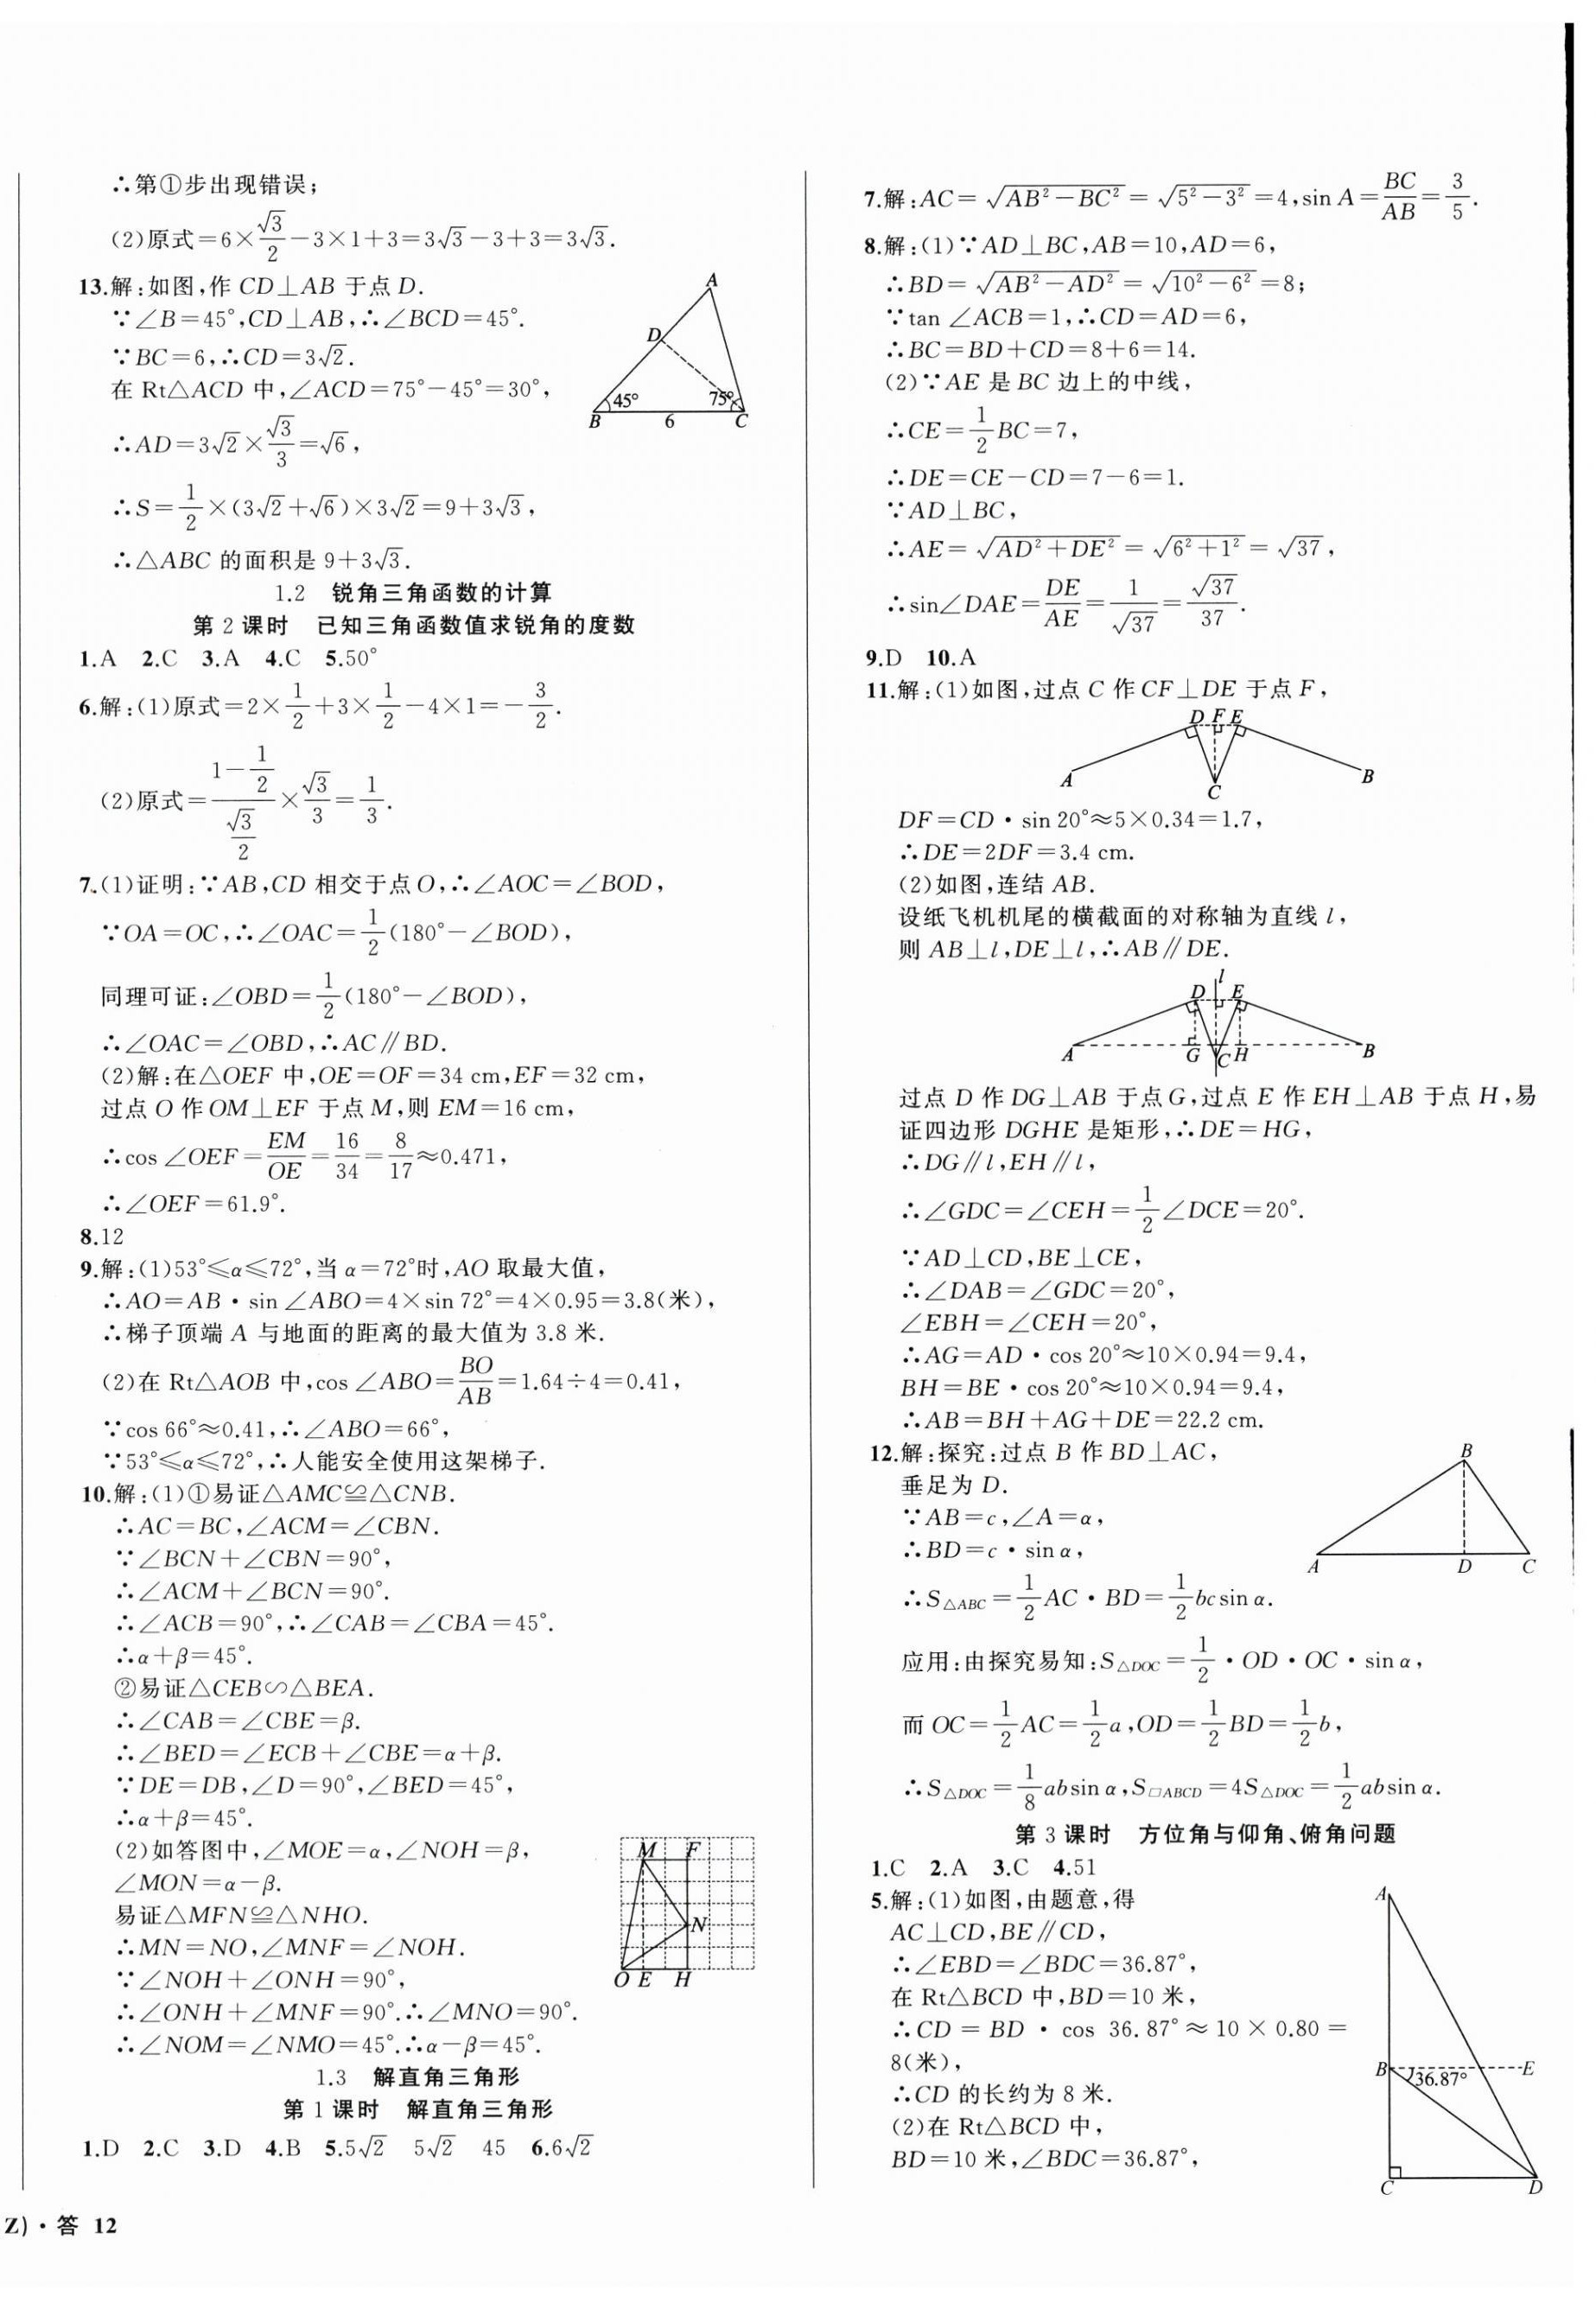 ∴第①步出现错误;
(2)原式=6×√3/2-3×1+3=3√3-3+3=3√3.
13.解:如图,作 CD⊥AB 于点 D.
∵∠B=45°,CD⊥AB,∴∠BCD=45°.
∵BC=6,∴CD=3√2.
在 Rt△ACD 中,∠ACD=75°-45°=30°,
∴AD=3√2×√3/3=√6,
∴S=1/2×(3√2+√6)×3√2=9+3√3,
∴△ABC 的面积是 9+3√3.
A
D
45°
75°
B
6
C
1.2 锐角三角函数的计算
第 2 课时 已知三角函数值求锐角的度数
1.A 2.C 3.A 4.C 5.50°
6.解:(1)原式=2×1/2+3×1/2-4×1=-3/2.
(2)原式=(1-1/2)/(√3/2)×√3/3=1/3.
7.(1)证明:∵AB,CD 相交于点 O,∴∠AOC=∠BOD,
∵OA=OC,∴∠OAC=1/2(180°-∠BOD),
同理可证:∠OBD=1/2(180°-∠BOD),
∴∠OAC=∠OBD,∴AC∥BD.
(2)解:在△OEF 中,OE=OF=34 cm,EF=32 cm,
过点 O 作 OM⊥EF 于点 M,则 EM=16 cm,
∴cos ∠OEF=EM/OE=16/34=8/17≈0.471,
∴∠OEF=61.9°.
8.12
9.解:(1)53°≤α≤72°,当 α=72°时,AO 取最大值,
∴AO=AB·sin ∠ABO=4×sin 72°=4×0.95=3.8(米),
∴梯子顶端 A 与地面的距离的最大值为 3.8 米.
(2)在 Rt△AOB 中,cos ∠ABO=BO/AB=1.64÷4=0.41,
∵cos 66°≈0.41,∴∠ABO=66°,
∵53°≤α≤72°,∴人能安全使用这架梯子.
10.解:(1)①易证△AMC≌△CNB.
∴AC=BC,∠ACM=∠CBN.
∵∠BCN+∠CBN=90°,
∴∠ACM+∠BCN=90°.
∴∠ACB=90°,∴∠CAB=∠CBA=45°.
∴α+β=45°.
②易证△CEB∽△BEA.
∴∠CAB=∠CBE=β.
∴∠BED=∠ECB+∠CBE=α+β.
∵DE=DB,∠D=90°,∠BED=45°,
∴α+β=45°.
(2)如答图中,∠MOE=α,∠NOH=β,
∠MON=α-β.
易证△MFN≌△NHO.
∴MN=NO,∠MNF=∠NOH.
∵∠NOH+∠ONH=90°,
∴∠ONH+∠MNF=90°.∴∠MNO=90°.
∴∠NOM=∠NMO=45°.∴α-β=45°.
M F
N
O E H
1.3 解直角三角形
第 1 课时 解直角三角形
1.D 2.C 3.D 4.B 5.5√2 5√2 45 6.6√2
Z)·答 12
7.解:AC=√(AB²-BC²)=√(5²-3²)=4,sin A=BC/AB=3/5.
8.解:(1)∵AD⊥BC,AB=10,AD=6,
∴BD=√(AB²-AD²)=√(10²-6²)=8;
∵tan ∠ACB=1,∴CD=AD=6,
∴BC=BD+CD=8+6=14.
(2)∵AE 是 BC 边上的中线,
∴CE=1/2BC=7,
∴DE=CE-CD=7-6=1.
∵AD⊥BC,
∴AE=√(AD²+DE²)=√(6²+1²)=√37,
∴sin∠DAE=DE/AE=1/√37=√37/37.
9.D 10.A
11.解:(1)如图,过点 C 作 CF⊥DE 于点 F,
D F E
A
B
C
DF=CD·sin 20°≈5×0.34=1.7,
∴DE=2DF=3.4 cm.
(2)如图,连结 AB.
设纸飞机机尾的横截面的对称轴为直线 l,
则 AB⊥l,DE⊥l,∴AB∥DE.
l
D E
A G C H B
过点 D 作 DG⊥AB 于点 G,过点 E 作 EH⊥AB 于点 H,易
证四边形 DGHE 是矩形,∴DE=HG,
∴DG∥l,EH∥l,
∴∠GDC=∠CEH=1/2∠DCE=20°.
∵AD⊥CD,BE⊥CE,
∴∠DAB=∠GDC=20°,
∠EBH=∠CEH=20°,
∴AG=AD·cos 20°≈10×0.94=9.4,
BH=BE·cos 20°≈10×0.94=9.4,
∴AB=BH+AG+DE=22.2 cm.
12.解:探究:过点 B 作 BD⊥AC,
垂足为 D.
∵AB=c,∠A=α,
∴BD=c·sin α,
∴S△ABC=1/2AC·BD=1/2bcsin α.
B
A D C
应用:由探究易知:S△DOC=1/2·OD·OC·sin α,
而 OC=1/2AC=1/2a,OD=1/2BD=1/2b,
∴S△DOC=1/8absin α,S▱ABCD=4S△DOC=1/2absin α.
第 3 课时 方位角与仰角、俯角问题
1.C 2.A 3.C 4.51
5.解:(1)如图,由题意,得
AC⊥CD,BE∥CD,
∴∠EBD=∠BDC=36.87°,
在 Rt△BCD 中,BD=10 米,
∴CD=BD·cos 36.87°≈10×0.80=
8(米),
∴CD 的长约为 8 米.
(2)在 Rt△BCD 中,
BD=10 米,∠BDC=36.87°,
A
B
36.87°
E
C
D